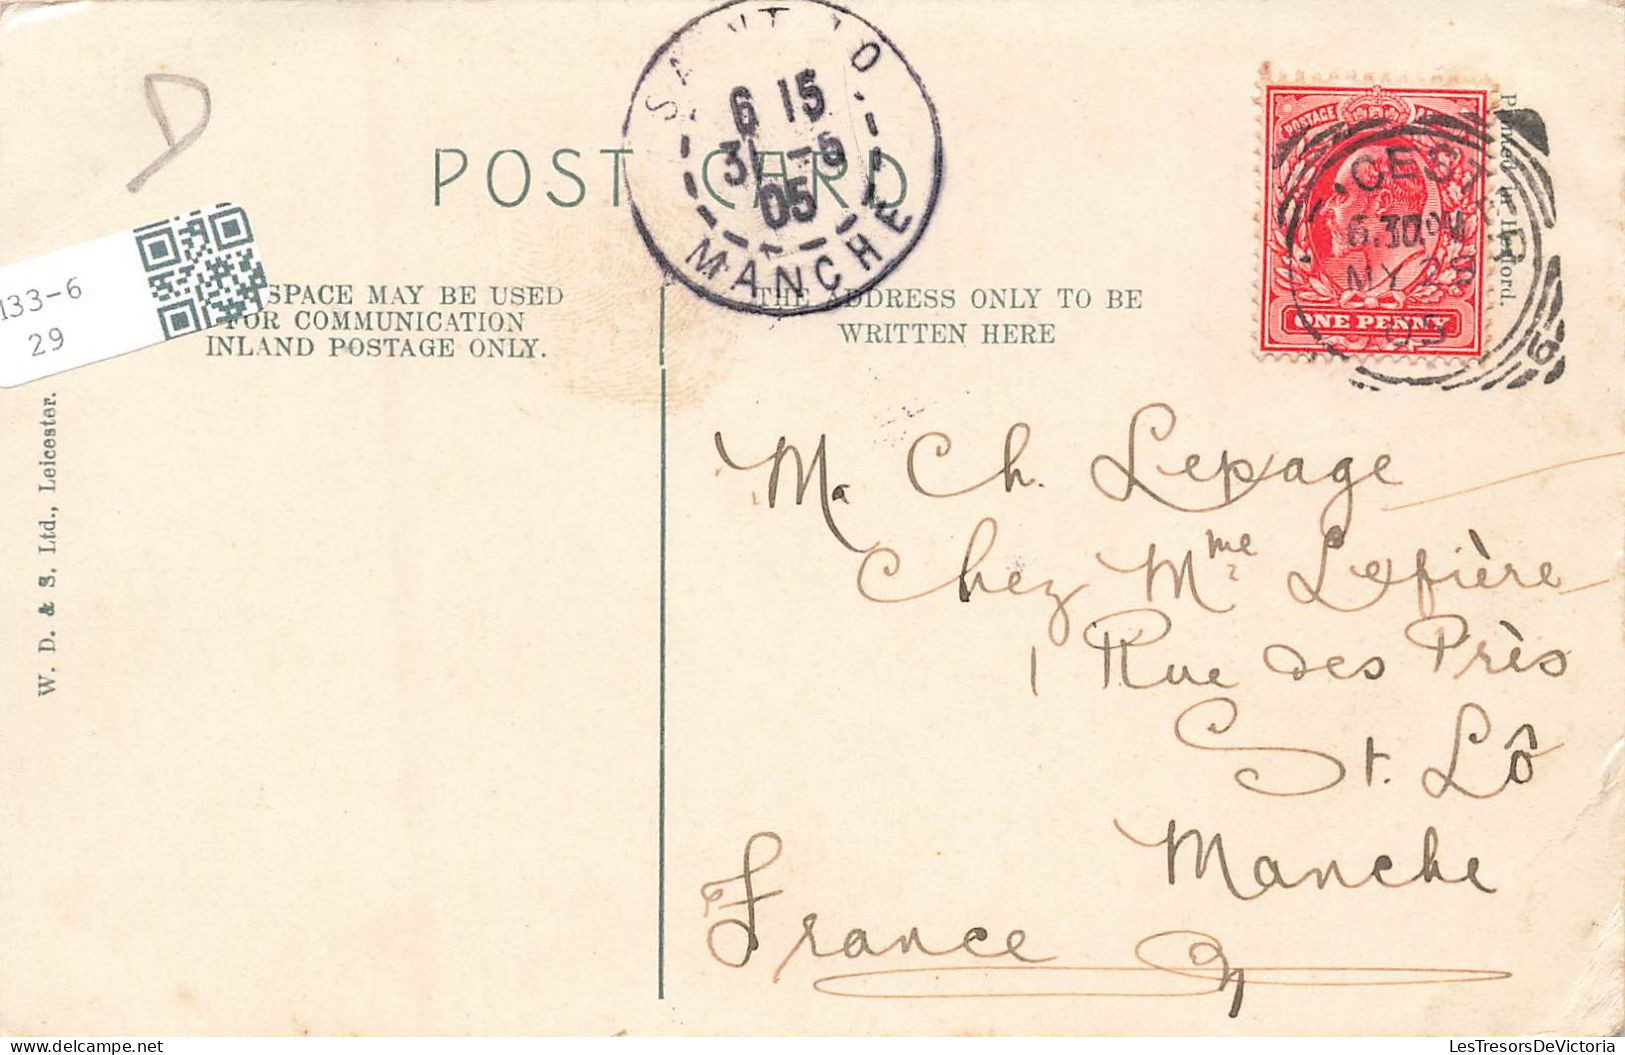 D
133-6
29
POST CARD
SPACE MAY BE USED
FOR COMMUNICATION
INLAND POSTAGE ONLY.
THE ADDRESS ONLY TO BE
WRITTEN HERE
SAINT LO
6 15
31 -5
05
MANCHE
POSTAGE
ONE PENNY
LEICESTER
6.30 PM
MY 29
05
W. D. & S. Ltd., Leicester.
M. Ch. Lepage
Chez Mme Lefière
1 Rue des Près
St. Lô
Manche
France
LesTresorsDeVictoria